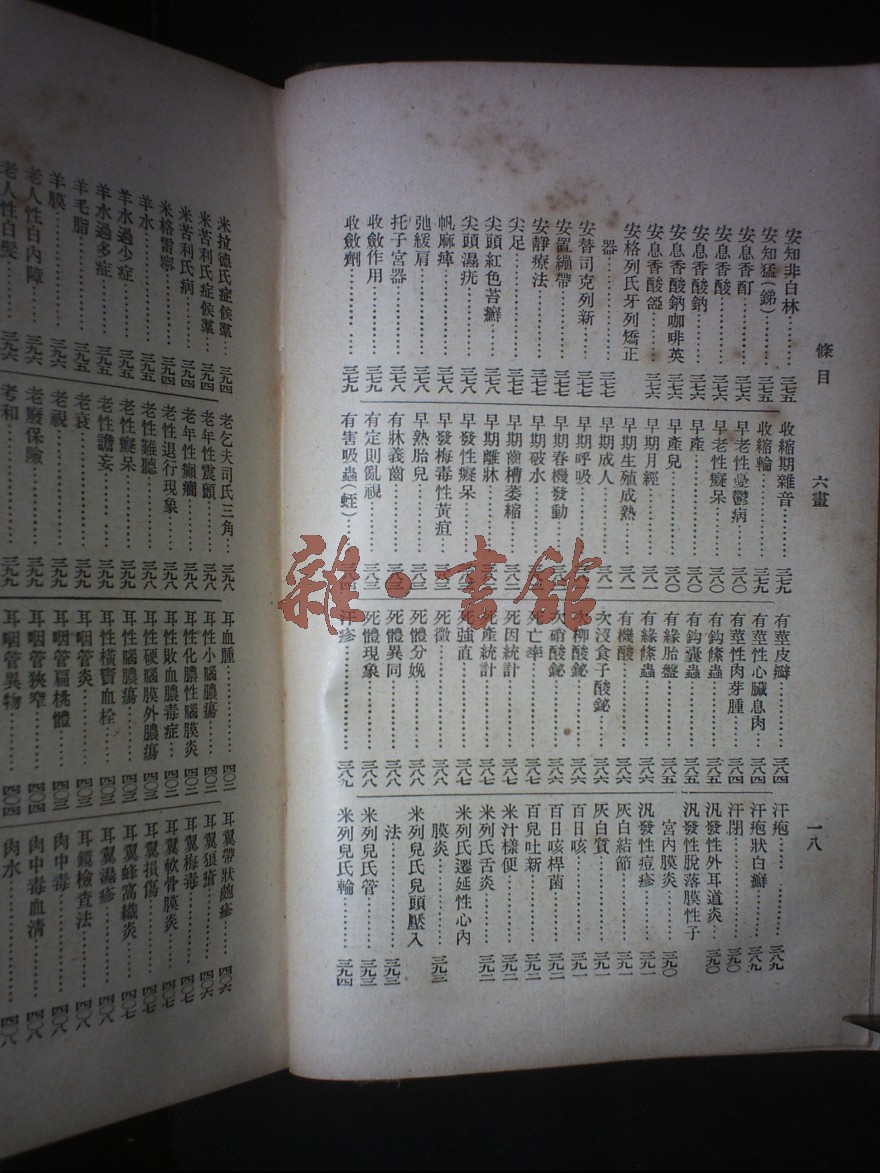 條目 六畫 一八
安知非白林 三七五
安知猛(銻) 三七五
安息香酊 三七六
安息香酸 三七六
安息香酸鈉 三七六
安息香酸鈉咖啡英 三七六
安息香酸
安格列氏牙列矯正
器 三七七
安替司克列新 三七七
安置繃帶 三七七
安靜療法 三七七
尖足 三七七
尖頭紅色苔癬 三七八
尖頭濕疣 三七八
帆麻痺 三七八
弛緩肩 三七八
托子宮器 三七九
收斂作用 三七九
收斂劑 三七九
收縮期雜音 三七九
收縮輪 三七九
早老性憂鬱病 三八〇
早老性癡呆 三八〇
早產 三八〇
早產兒 三八〇
早期月經 三八一
早期生殖成熟 三八一
早期成人
早期呼吸
早期春機發動
早期破水
早期齒槽萎縮
早期離牀
早發性癡呆
早發梅毒性黃疸
早熟胎兒
有牀義齒
有定則亂視
有害吸蟲(蛭)
有莖皮瓣 三八四
有莖性心臟息肉 三八四
有莖性肉芽腫 三八四
有鈎絛蟲 三八五
有鈎囊蟲 三八五
有緣胎盤 三八五
有緣絛蟲 三八六
有機酸 三八六
次沒食子酸鉍 三八六
次柳酸鉍 三八六
次硝酸鉍 三八六
死亡率 三八七
死因統計 三八七
死產統計 三八七
死強直 三八七
死徵 三八八
死體分娩 三八八
死體異同 三八八
死體現象 三八八
汗疹 三八九
汗疱 三八九
汗疱狀白癬 三八九
汗閉 三九〇
汎發性外耳道炎 三九〇
汎發性脫落膜性子
宮內膜炎 三九〇
汎發性痘疹 三九一
灰白結節 三九一
灰白質 三九一
百日咳 三九一
百日咳桿菌 三九二
百兒吐新 三九二
米汁樣便 三九二
米列氏舌炎 三九二
米列氏遷延性心內
膜炎 三九三
米列兒氏兒頭壓入
法 三九三
米列兒氏管 三九三
米列兒氏輪 三九四
米拉德氏症候羣 三九四
米苦利氏症候羣 三九四
米苦利氏病 三九四
米格雷寧 三九四
羊水 三九五
羊水過少症 三九五
羊水過多症 三九五
羊毛脂 三九五
羊膜 三九六
老人性白內障 三九六
老人性白髮 三九六
老乞夫司氏三角 三九八
老年性震顫 三九八
老年性癲癇 三九八
老性退行現象 三九八
老性難聽 三九八
老性癡呆 三九九
老性譫妄 三九九
老衰 三九九
老視 三九九
老廢保險 三九九
考和 三九九
耳血腫 四〇二
耳性小腦膿瘍 四〇二
耳性化膿性腦膜炎 四〇二
耳性敗血膿毒症 四〇二
耳性硬腦膜外膿瘍 四〇二
耳性腦膿瘍 四〇三
耳性橫竇血栓 四〇三
耳咽管炎 四〇三
耳咽管扁桃體 四〇三
耳咽管狹窄 四〇四
耳咽管異物 四〇四
耳翼帶狀皰疹 四〇六
耳翼狼瘡 四〇六
耳翼梅毒 四〇七
耳翼軟骨膜炎 四〇七
耳翼損傷 四〇七
耳翼蜂窩織炎 四〇七
耳翼濕疹 四〇八
耳鏡檢查法 四〇八
肉中毒 四〇八
肉中毒血清 四〇八
肉水 四〇八
雜·書館